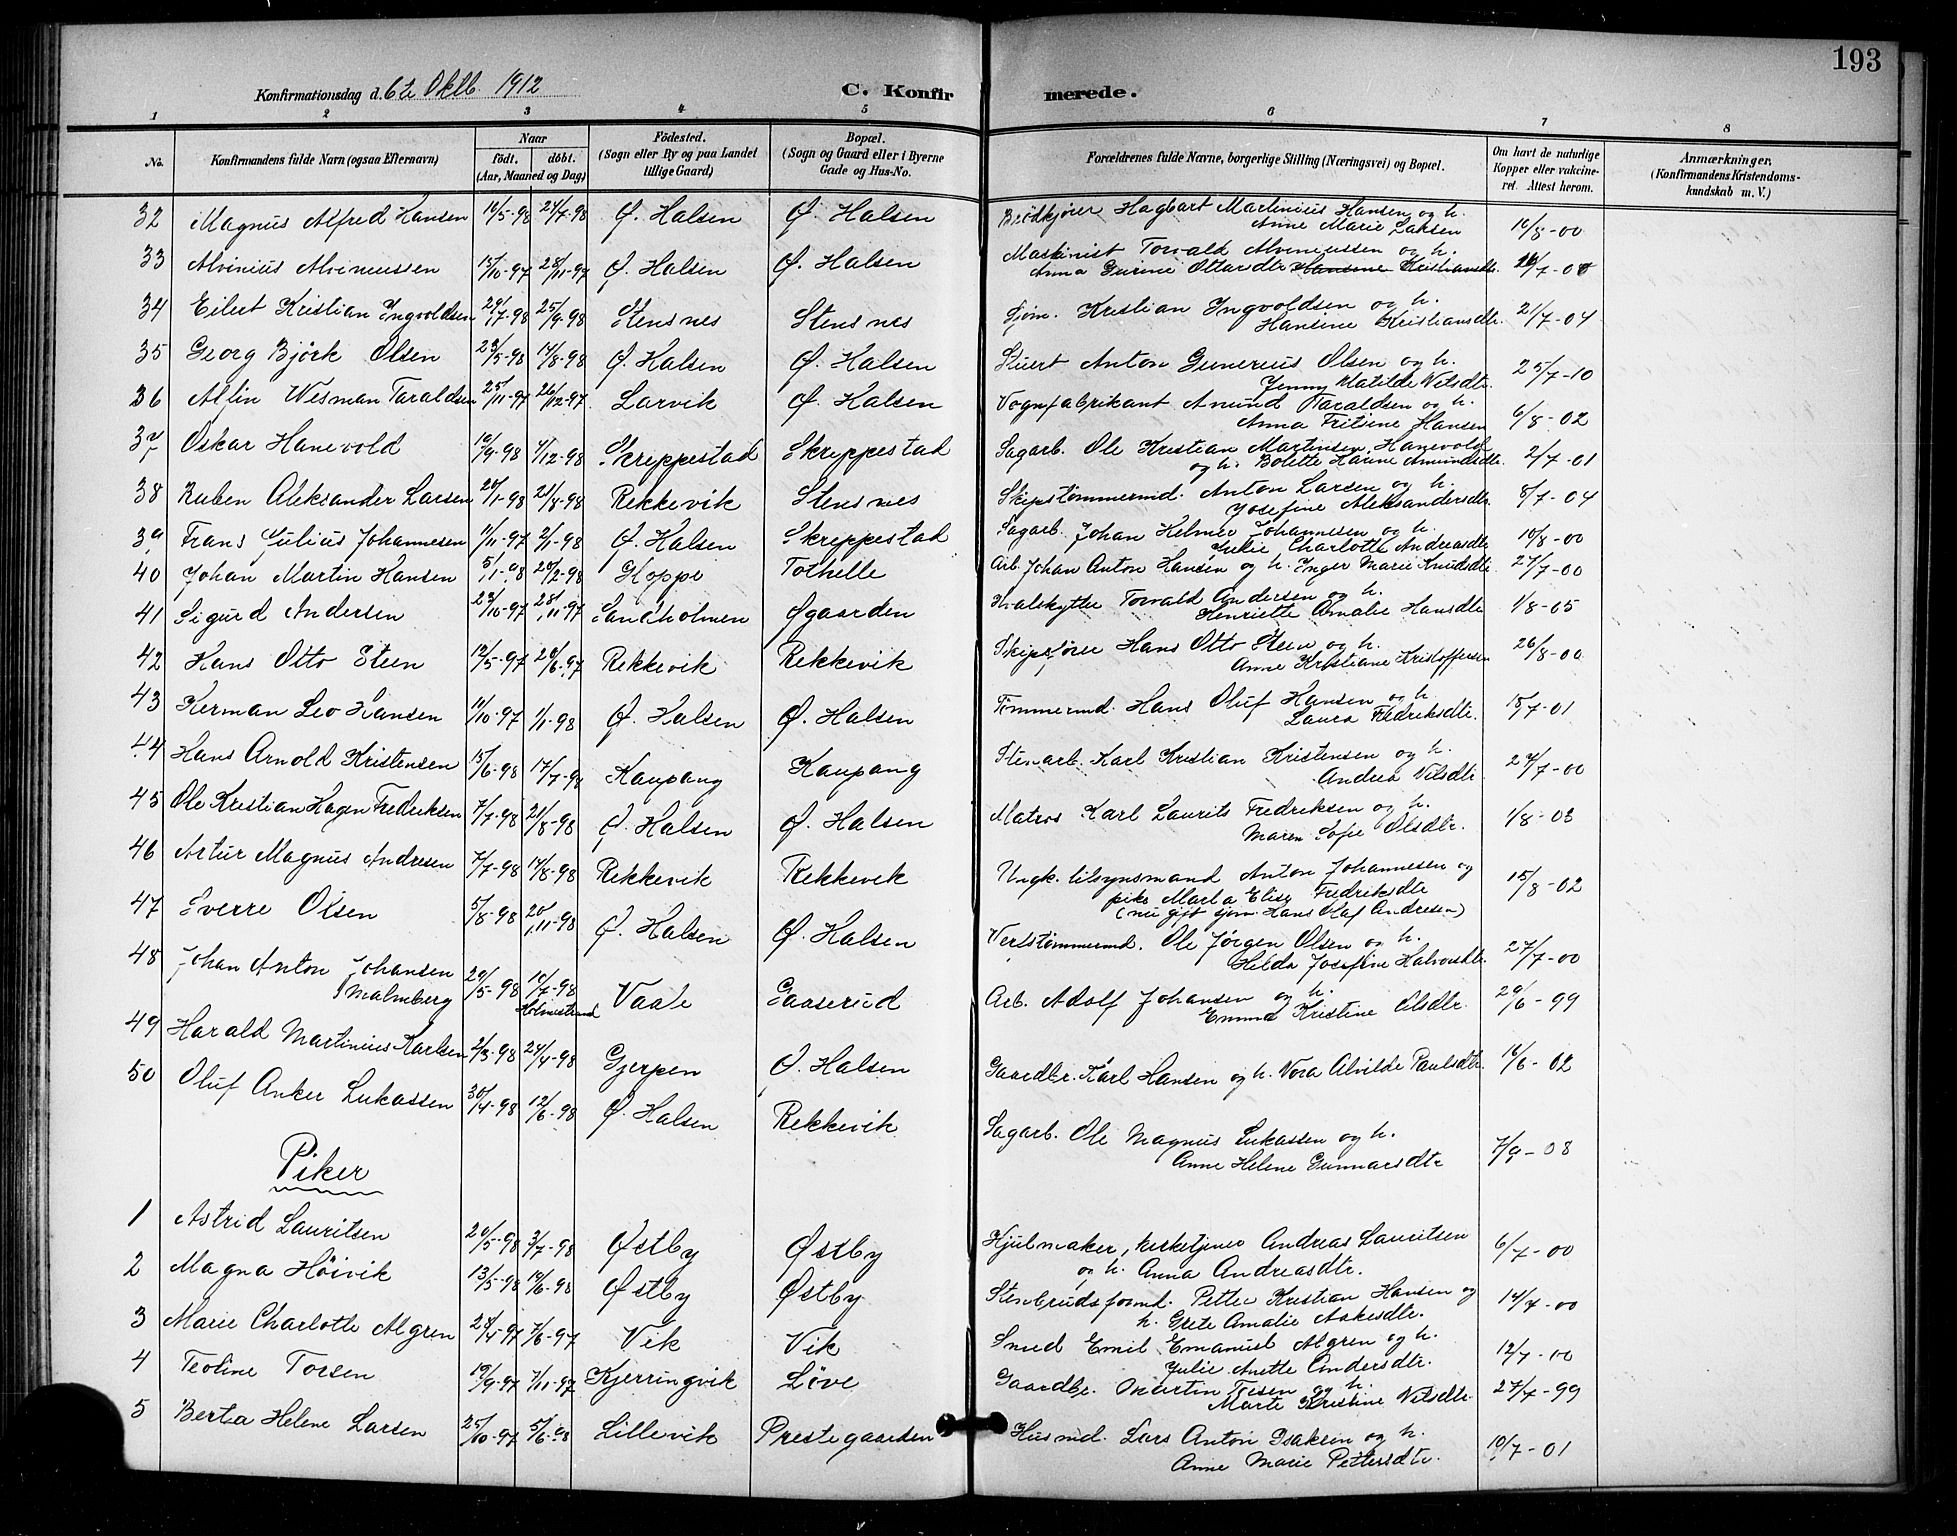 193
Konfirmationsdag d. 6te Oktb. 1912
C. Konfirmerede.
1 2 3 4 5 6 7 8
No. Konfirmandens fulde Navn (ogsaa Efternavn) Naar født. døbt. (Aar, Maaned og Dag) Fødested. (Sogn eller By og paa Landet tillige Gaard) Bopæl. (Sogn og Gaard eller i Byerne Gade og Hus-No. Forældrenes fulde Navne, borgerlige Stilling (Næringsvei) og Bopæl. Om havt de naturlige Kopper eller vakcineret. Attest herom. Anmærkninger, (Konfirmandens Kristendomskundskab m. V.)
32 Magnus Alfred Hansen 16/5-98 24/7-98 Ø. Halsen Ø. Halsen Brødkjører Hagbart Martinius Hansen og h. Anne Marie Laksen 10/8-00
33 Alvinius Alviniussen 15/10-97 28/11-97 Ø. Halsen Ø. Halsen Maskinist Torvald Alviniussen og h. Anna Gurine Ottarsdtr Hansine Kristiansdtr.
34 Eilert Kristian Ingvoldsen 29/7-98 25/9-98 Stensnes Stensnes Sjøm. Kristian Ingvoldsen og h. Hansine Kristiansdtr. 21/7-04
35 Georg Bjørk Olsen 23/5-98 14/8-98 Ø. Halsen Ø. Halsen Stuert Anton Gunerius Olsen og h. Jenny Matilde Nilsdtr. 25/7-10
36 Alfin Wisman Taraldsen 25/11-97 26/12-97 Larvik Ø. Halsen Vognfabrikant Amund Taraldsen og h. Anna Fritsine Hansen 6/8-02
37 Oskar Hanevold 10/9-98 4/12-98 Skreppestad Skreppestad Sagarb. Ole Kristian Martinsen Hanevold og h. Bolette Karine Amundsdtr. 2/7-01
38 Ruben Aleksander Larsen 20/1-98 21/8-98 Rekkevik Stensnes Skipstømmermd. Anton Larsen og h. Josefine Aleksandersdtr. 8/7-04
39 Frans Julius Johannesen 11/11-97 2/1-98 Ø. Halsen Skreppestad Sagarb. Johan Helmer Johannesen og h. Julie Charlotte Andreasdtr 10/8-00
40 Johan Martin Hansen 5/1-98 20/2-98 Hoppe Tothelle Arb. Johan Anton Hansen og h. Inger Marie Knudsdtr. 27/7-00
41 Sigurd Andersen 23/10-97 28/11-97 Sandholmen Øgaarden Hvalskytter Torvald Andersen og h. Henriette Amalie Hansdtr 1/8-05
42 Hans Otto Steen 12/5-97 20/6-97 Rekkevik Rekkevik Skipsfører Hans Otto Steen og h. Anne Kristiane Kristoffersen 26/8-00
43 Herman Leo Hansen 11/10-97 1/1-98 Ø. Halsen Ø. Halsen Tømmermd. Hans Oluf Hansen og h. Laura Fredriksdtr. 15/7-01
44 Hans Arnold Kristensen 15/6-98 17/7-98 Kaupang Kaupang Stenarb. Karl Kristian Kristensen og h. Andrea Nilsdtr. 24/7-00
45 Ole Kristian Hagen Fredriksen 7/7-98 21/8-98 Ø. Halsen Ø. Halsen Matros Karl Laurits Fredriksen og h. Maren Sofie Olsdtr. 1/8-03
46 Artur Magnus Andresen 7/7-98 14/8-98 Rekkevik Rekkevik Ungk. tilsynsmand Anton Johannesen og pike Marta Elise Fredriksdtr (nu gift sjøm. Hans Olaf Andresen) 15/8-02
47 Sverre Olsen 5/8-98 20/11-98 Ø. Halsen Ø. Halsen Verkstømmermd. Ole Jørgen Olsen og h. Hilda Josefine Halvorsdtr. 27/7-00
48 Johan Anton Johansen Malmberg 29/5-98 10/7-98 Holmestrand Vaale Gaaserud Arb. Adolf Johansen og h. Emma Kristine Olsdtr. 20/6-99
49 Harald Martinius Karlsen 2/3-98 24/4-98 Gjerpen Ø. Halsen Gaardbr. Karl Hansen og h. Nora Alvilde Paulsdtr. 16/6-02
50 Oluf Anker Lukassen 30/4-98 12/6-98 Ø. Halsen Rekkevik Sagarb. Ole Magnus Lukassen og h. Anne Helene Gunnarsdtr 7/9-08
Piker
1 Astrid Lauritsen 20/5-98 3/7-98 Østby Østby Hjulmaker, kirketjener Andreas Lauritsen og h. Anna Andreasdtr. 6/7-00
2 Magna Höivik 13/5-98 19/6-98 Østby Østby Stenbrudsformd. Petter Kristian Hansen og h. Grete Amalie Aakesdtr. 14/7-00
3 Marie Charlotte Algren 28/4-97 7/6-97 Vik Vik Smed Emil Emanuel Algren og h. Julie Anette Andersdtr. 12/7-00
4 Teoline Torsen 19/9-97 7/11-97 Kjerringvik Løve Gaardbr. Martin Torsen og h. Marte Kristine Nilsdtr. 27/7-99
5 Berta Helene Larsen 25/10-97 5/6-98 Lillevik Prestegaarden Husmd. Lars Anton Isaksen og h. Anne Marie Pettersdtr. 10/7-01